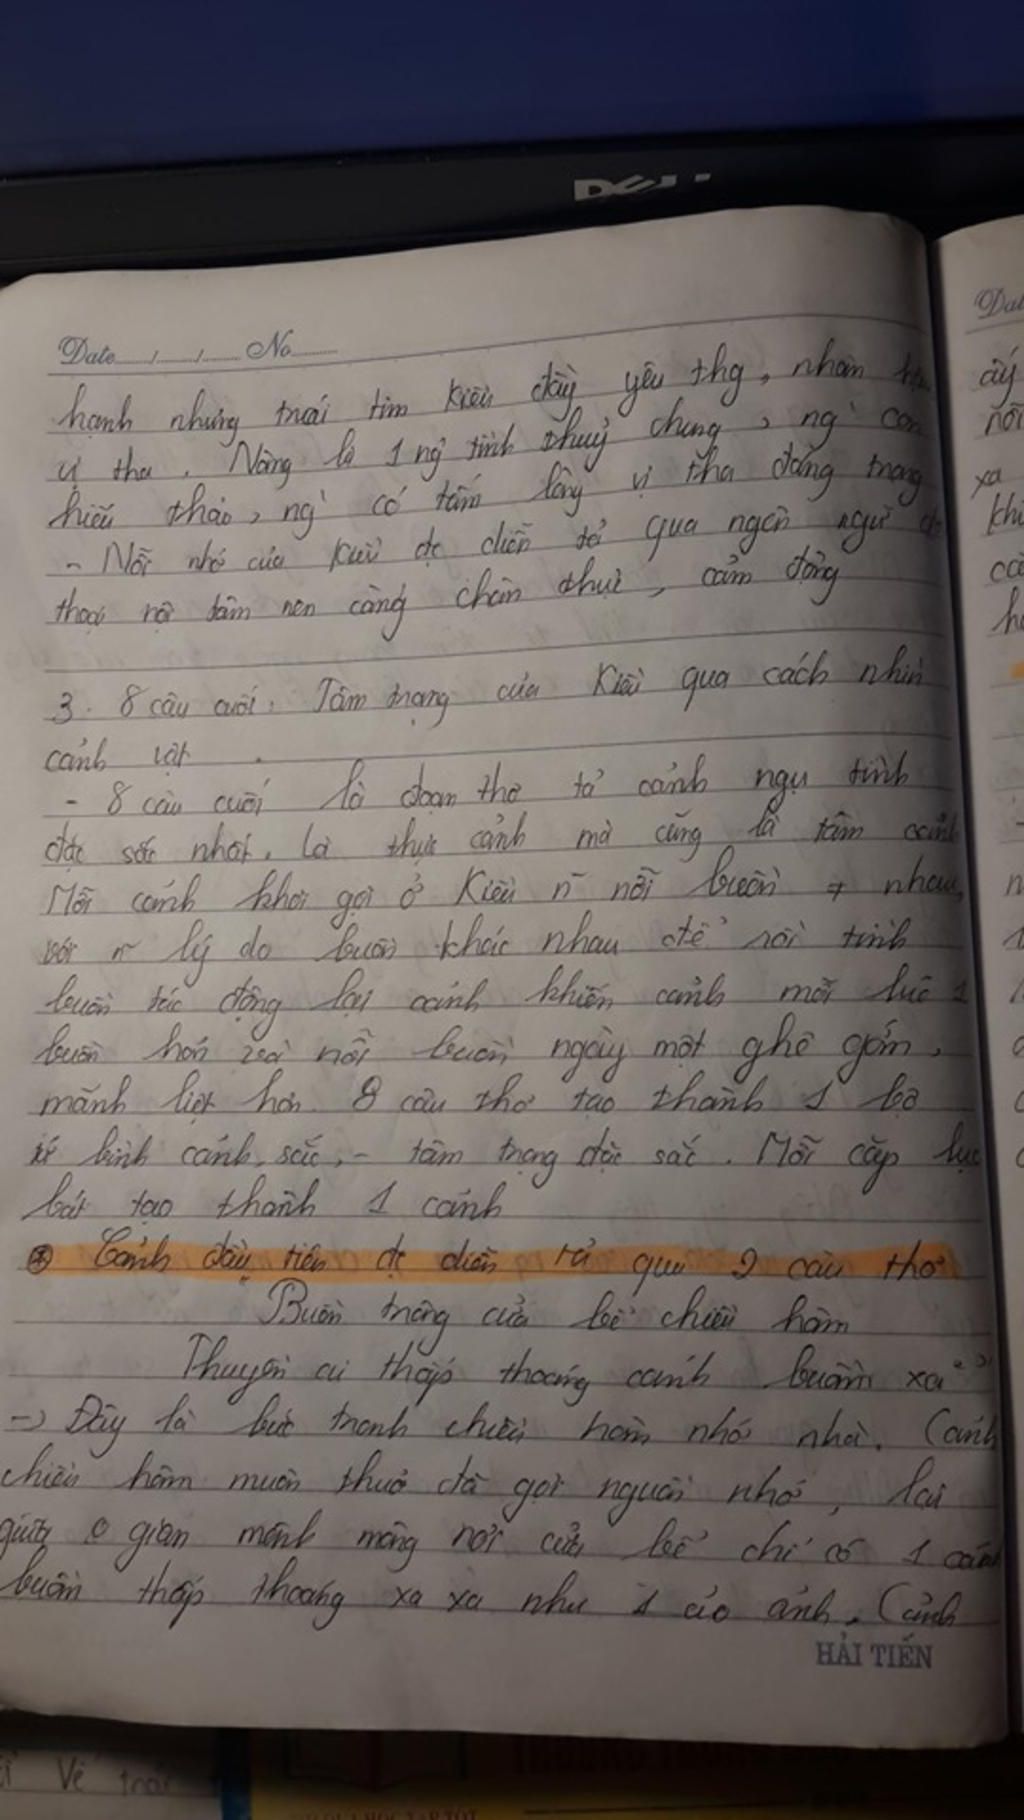 DELL
Date..../..../.... No........
hạnh nhưng trái tim Kiều đầy yêu thg, nhân
vị tha. Nàng là 1 ng` tình thuỷ chung, ng` con
hiếu thảo, ng` có tấm lòng vị tha đáng trọng
- Nỗi nhớ của Kiều đc diễn tả qua ngôn ngữ
thoại nội tâm nên càng chân thực, cảm động
3. 8 câu cuối: Tâm trạng của Kiều qua cách nhìn
cảnh vật.
- 8 câu cuối là đoạn thơ tả cảnh ngụ tình
đặc sắc nhất. Là thực cảnh mà cũng là tâm cảnh
Mỗi cảnh khơi gợi ở Kiều n~ nỗi buồn ≠ nhau,
với n~ lý do buồn khác nhau để rồi tình
buồn tác động lại cảnh khiến cảnh mỗi lúc 1
buồn hơn và nỗi buồn ngày một ghê gớm,
mãnh liệt hơn. 8 câu thơ tạo thành 1 bộ
tứ bình cảnh sắc - tâm trạng đặc sắc. Mỗi cặp lục
bát tạo thành 1 cảnh
⊛ Cảnh đầu tiên đc diễn tả qua 2 câu thơ
"Buồn trông cửa bể chiều hôm
Thuyền ai thấp thoáng cánh buồm xa xa"
-> Đây là bức tranh chiều hôm nhớ nhà. Cảnh
chiều hôm muôn thuở đã gợi nguồn nhớ, lại
giữa 0 gian mênh mông nơi cửa bể chỉ có 1 cánh
buồm thấp thoáng xa xa như 1 ảo ảnh. Cảnh
HẢI TIẾN
Date
ấy
nỗi
xa
khi
Vẽ trái